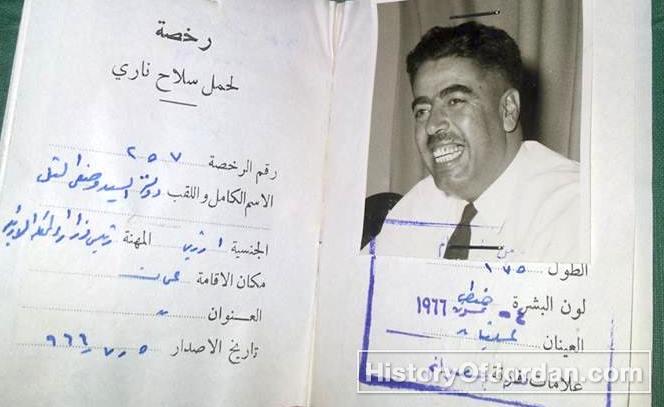 رخصة
لحمل سلاح ناري
رقم الرخصة ٢٥٧
الاسم الكامل واللقب دولة السيد وصفي التل
الجنسية اردني المهنة رئيس وزراء المملكة الاردنية
مكان الاقامة عمان
العنوان "
تاريخ الاصدار ٥ / ٧ / ٩٦٦
الطول ١٧٥
لون البشرة حنطي
٤ تموز ١٩٦٦
العينان
علامات فارقة
HistoryOfJordan.com